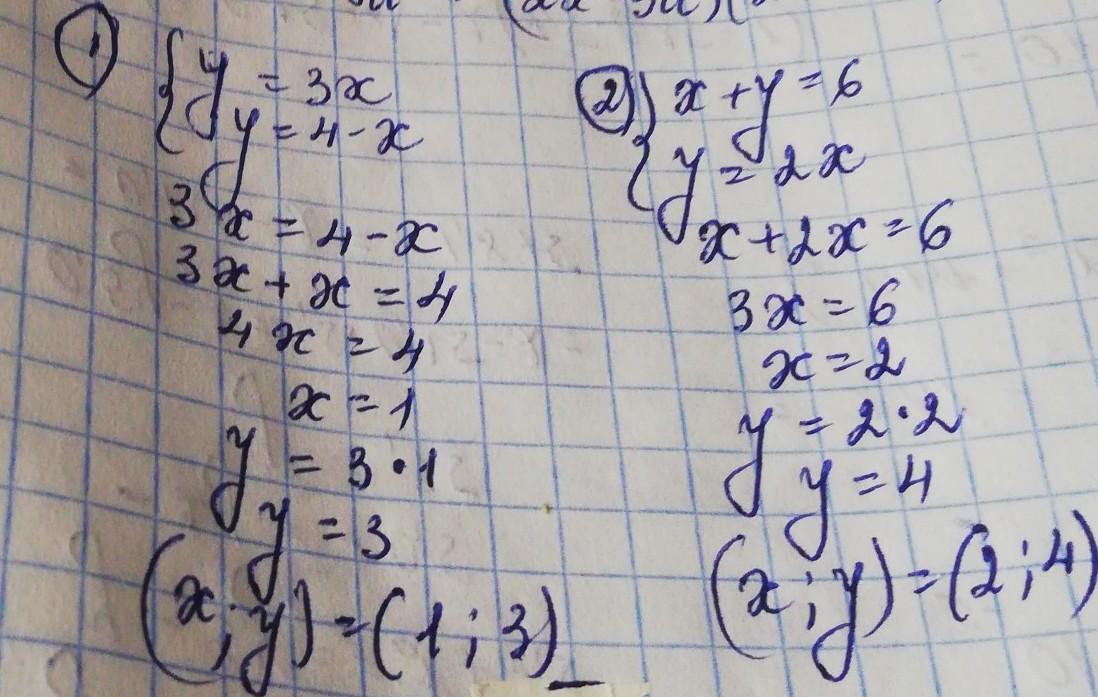 ① { y = 3x
y = 4 - x
3x = 4 - x
3x + x = 4
4x = 4
x = 1
y = 3 · 1
y = 3
(x; y) = (1; 3)
② { x + y = 6
y = 2x
x + 2x = 6
3x = 6
x = 2
y = 2 · 2
y = 4
(x; y) = (2; 4)